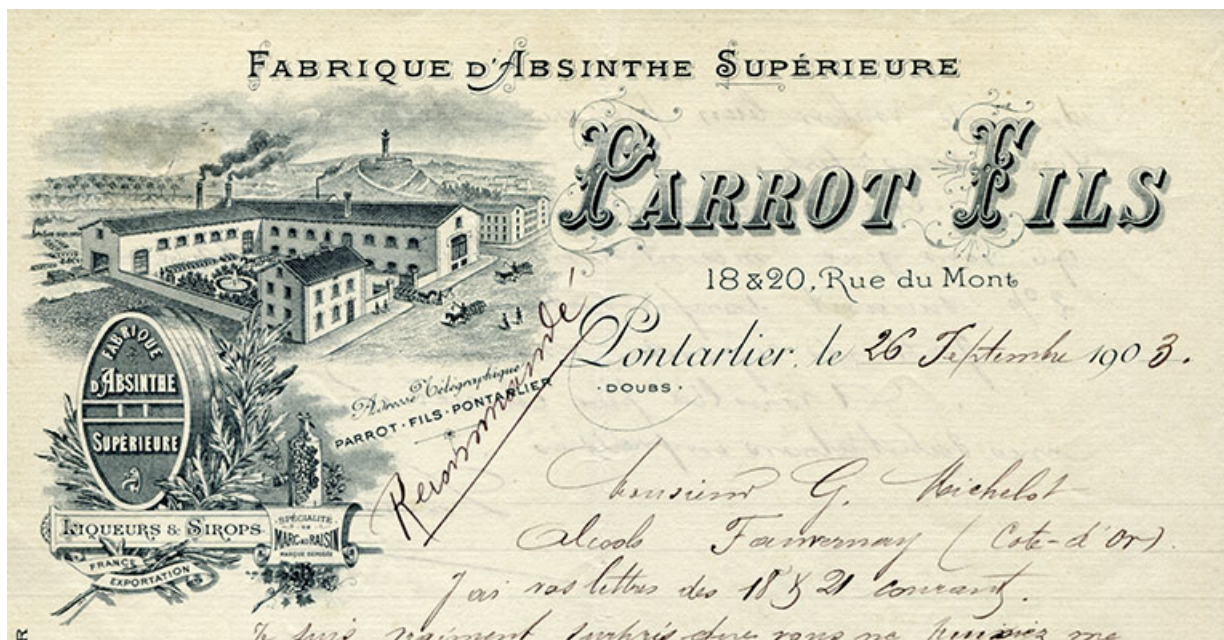 FABRIQUE D'ABSINTHE SUPÉRIEURE
PARROT FILS
18 & 20, Rue du Mont
Pontarlier, le 26 Septembre 1903.
· DOUBS ·
Adresse Télégraphique
PARROT · FILS · PONTARLIER
Recommandé
FABRIQUE
D'ABSINTHE
SUPÉRIEURE
LIQUEURS & SIROPS
SPÉCIALITÉ
DE
MARC DE RAISIN
MARQUE DÉPOSÉE
FRANCE
EXPORTATION
Monsieur G. Michelot
Alcools Fauvernay (Cote-d'Or).
J'ai vos lettres des 18 & 21 courant.
Je suis vraiment surpris que vous ne me